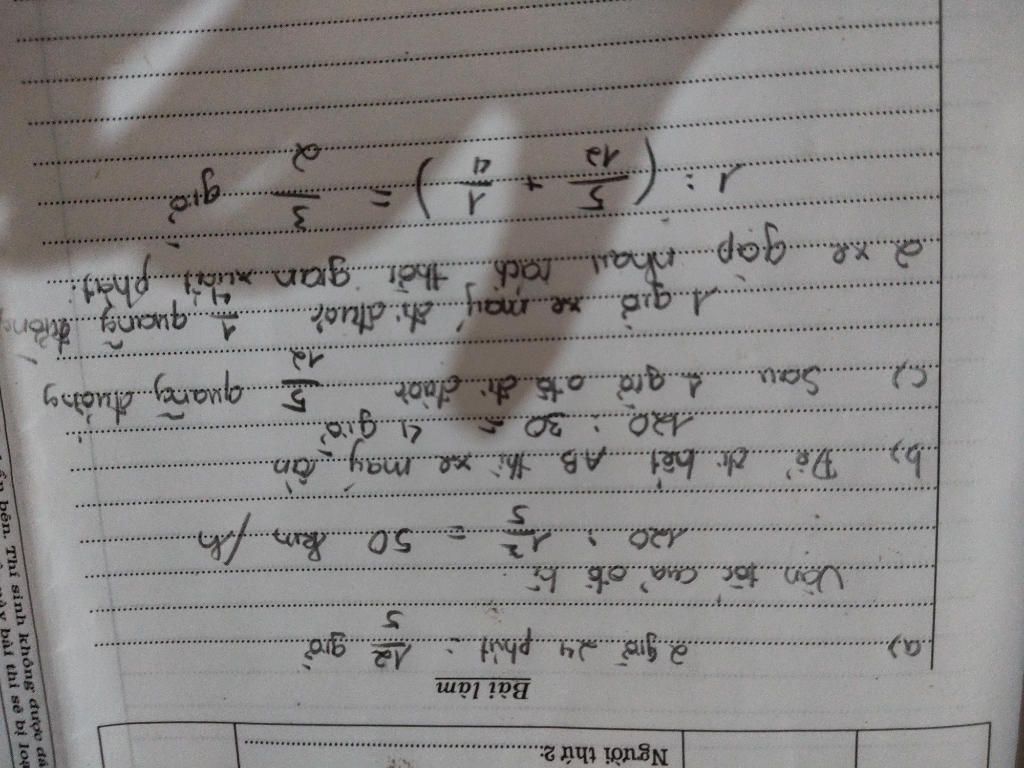 Người thứ 2:
Bài làm
a) 2 giờ 24 phút = 12/5 giờ
Vận tốc của ôtô là
120 : 12/5 = 50 km/h
b) Để đi hết AB thì xe máy cần
120 : 30 = 4 giờ
c) Sau 1 giờ ôtô đi được 5/12 quãng đường
1 giờ xe máy đi được 1/4 quãng đường
2 xe gặp nhau cách thời gian xuất phát:
1 : (5/12 + 1/4) = 3/2 giờ
bên. Thí sinh không được
này bài thi sẽ bị